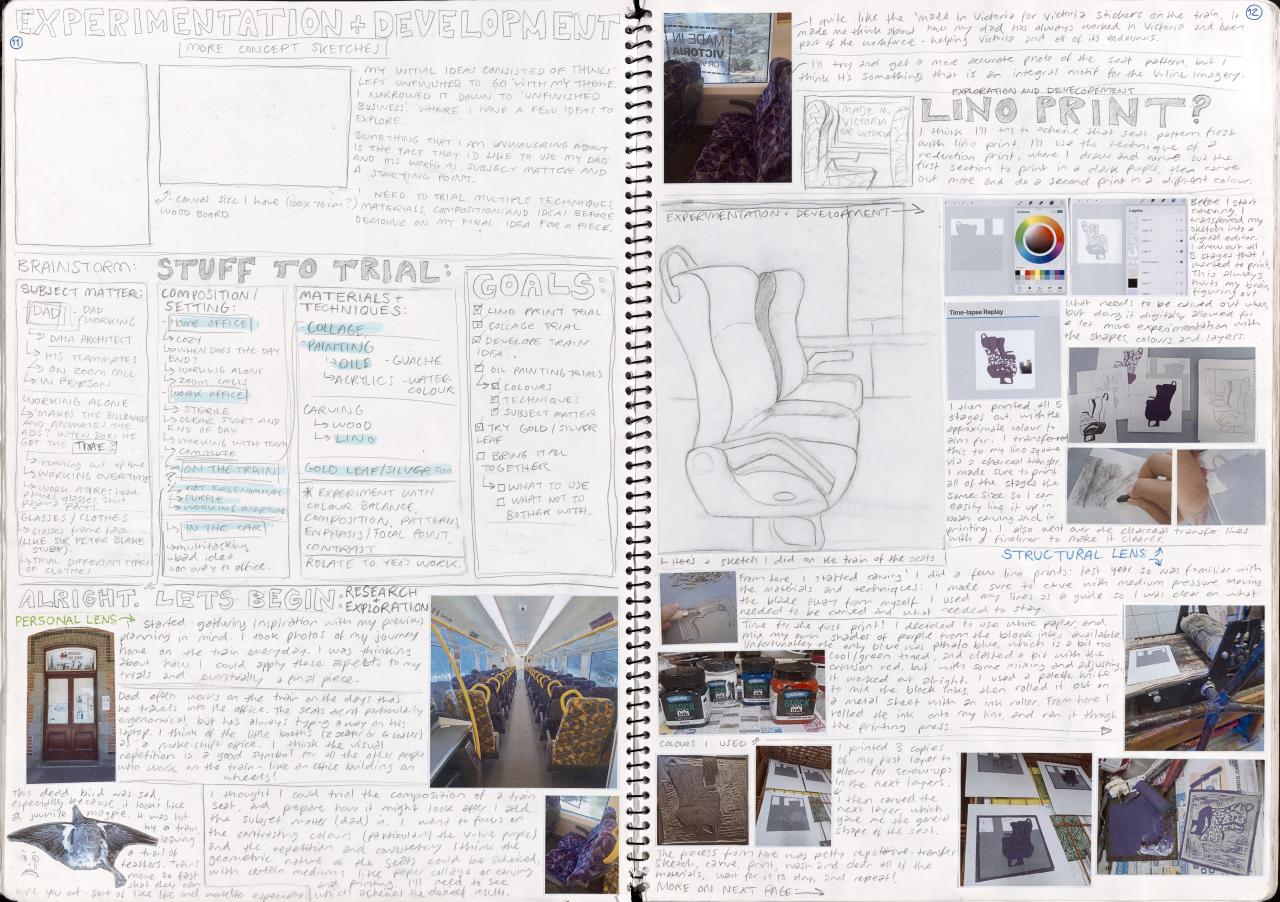 11
EXPERIMENTATION + DEVELOPMENT
MORE CONCEPT SKETCHES
MY INITIAL IDEAS CONSISTED OF THINGS
LEFT UNFINISHED TO GO WITH MY THEME.
I NARROWED IT DOWN TO 'UNFINISHED
BUSINESS', WHERE I HAVE A FEW IDEAS TO
EXPLORE.
SOMETHING THAT I AM UNWAVERING ABOUT
IS THE FACT THAT I'D LIKE TO USE MY DAD
AND HIS WORK AS SUBJECT MATTER AND
A STARTING POINT.
I NEED TO TRIAL MULTIPLE TECHNIQUES
MATERIALS, COMPOSITIONS AND IDEAS BEFORE
DECIDING ON MY FINAL IDEA FOR A PIECE.
- CANVAS SIZE I HAVE (100 x 76 cm?)
WOOD BOARD.
BRAINSTORM:
SUBJECT MATTER:
DAD - DAD
WORKING
DATA ARCHITECT
HIS TEAMMATES
ON ZOOM CALL
IN PERSON
WORKING ALONE
MAKES THE BILLBOARDS
AND ANIMATES THE
ADS? WHEN DOES HE
GET THE TIME?
running out of time
WORKING OVERTIME
WORK ATIRE: head-
phones, glasses, shirt
pajama pants.
GLASSES / CLOTHES
Glasses frame face
(LIKE SIR PETER BLAKE
STUDY).
TRIAL DIFFERENT TYPES
OF CLOTHES
STUFF TO TRIAL:
COMPOSITION/
SETTING:
HOME OFFICE
COZY
WHEN DOES THE DAY
END?
WORKING ALONE
ZOOM CALLS
WORK OFFICE
STERILE
CLEAR START AND
END OF DAY
WORKING WITH TEAM
COMMUTE
ON THE TRAIN
NOT ERGONOMICAL
PURPLE
WORKING OVERTIME
IN THE CAR
multitasking
bad idea
on way to office.
MATERIALS +
TECHNIQUES:
COLLAGE
PAINTING
OILS - GUACHE
ACRYLICS - WATER-
COLOUR
CARVING
WOOD
LINO
GOLD LEAF/SILVER TOO
* EXPERIMENT WITH
COLOUR BALANCE,
COMPOSITION, PATTERNS
EMPHASIS / FOCAL POINT,
CONTRAST
RELATE TO YEO'S WORK.
GOALS:
LINO PRINT TRIAL
COLLAGE TRIAL
DEVELOP TRAIN
IDEA...
OIL PAINTING TRIALS
COLOURS
TECHNIQUES
SUBJECT MATTER
TRY GOLD/SILVER
LEAF
BRING IT ALL
TOGETHER
WHAT TO USE
WHAT NOT TO
BOTHER WITH.
ALRIGHT. LETS BEGIN:
RESEARCH
EXPLORATION
PERSONAL LENS
I started gathering inspiration with my previous
planning in mind. I took photos of my journey
home on the train everyday. I was thinking
about how I could apply these aspects to my
trials and eventually a final piece.
Dad often works on the train on the days that
he travels into the office. The seats aren't particularly
ergonomical, but he's always typing away on his
laptop. I think of the little booths (2 seater or 6 seater)
as a make-shift office. I think the visual
repetition is a good symbol for all the other people
who work on the train - like an office building on
wheels!
This dead bird was sad,
especially because it looks like
a juvenile magpie. It was hit
by a train,
leaving
a trail of
feathers. Trains
move so fast
that they can
wipe you out - sort of like life and mortality especially.
I thought I could trial the composition of a train
seat, and prepare how it might look after I add
the subject matter (dad) in. I want to focus on
the contrasting colours (particularly the V-line purple)
and the repetition and consistency. I think the
geometric nature of the seats could be achieved,
with certain mediums like paper collage or carving
and printing. I'll need to see
which achieves the desired result.
12
MADE IN
VICTORIA
FOR VICTORIA
I quite like the 'made in Victoria for Victoria' stickers on the train, it
made me think about how my dad has always worked in Victoria and been
part of the workforce - helping Victoria and all of its endeavours.
I'll try and get a more accurate photo of the seat pattern, but I
think it's something that is an integral motif for the V-line imagery.
MADE IN
VICTORIA
FOR VICTORIA
EXPLORATION AND DEVELOPEMENT
LINO PRINT?
I think I'll try to achieve that seat pattern first
with lino print. I'll use the technique of a
reduction print, where I draw and carve out the
first section to print in a dark purple, then carve
out more and do a second print in a different colour.
EXPERIMENTATION + DEVELOPMENT
Colours
Layers
Time-lapse Replay
Before I start
carving, I
transferred my
sketch into a
digital editor.
I drew out all
5 stages that I
wanted to print.
This always
hurts my brain,
figuring out
what needs to be carved out when,
but doing it digitally allowed for
a lot more experimentation with
the shapes, colours and layers.
I then printed all 5
stages out, with the
approximate colour to
aim for. I transfered
this to my lino square
via a charcoal transfer.
I made sure to print
all of the stages the
same size so I can
easily line it up in
both carving and in
printing. I also went over the charcoal transfer lines
with a fineliner to make it clearer.
Here's a sketch I did on the train of the seats
STRUCTURAL LENS
From here, I started carving. I did a few lino prints last year so was familiar with
the materials and techniques. I made sure to carve with medium pressure, moving
the blade away from myself. I used my lines as a guide so I was clear on what
needed to be carved and what needed to stay.
Time for the first print! I decided to use white paper, and
mix my own shades of purple from the block inks available.
Unfortunately the only blue was pthalo blue, which is a bit too
cool/green toned, and clashed a bit with the
crimson red, but with some mixing and adjusting,
it worked out alright. I used a palette knife
to mix the block inks, then rolled it out on
a metal sheet with an ink roller. From here I
rolled the ink onto my lino, and ran it through
the printing press.
COLOURS I USED
I printed 3 copies
of my first layer to
allow for screw-ups
in the next layers.
I then carved the
next layer, which
gave me the general
shape of the seat.
The process from here was pretty repetative - transfer
sketch, carve, print, wash and clear all of the
materials, wait for it to dry, and repeat!
MORE ON NEXT PAGE: